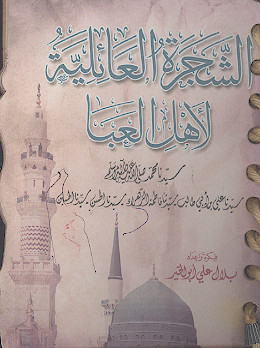 الشجرة العائلية
لأهل العبا
سيدنا محمد صلى الله عليه وسلم
سيدنا علي بن أبي طالب سيدتنا فاطمة الزهراء سيدنا الحسن سيدنا الحسين
فكرة وإعداد
بلال علي أبو الخير